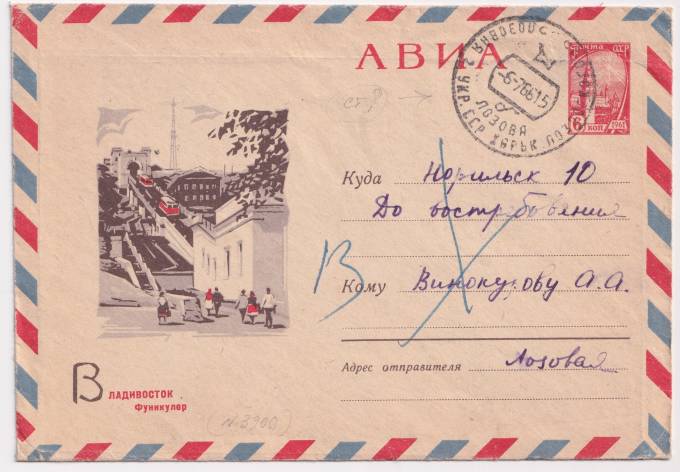 АВИА
почта СССР
6 КОП 1961
-6.7.66 15
ЛОЗОВА
2 УКР.ССР ХАРЬК.
ст.
Куда Норильск 10
До востребования
В
Кому Винокурову А.А.
Адрес отправителя Лозовая
ВЛАДИВОСТОК
Фуникулер
(N.3900)